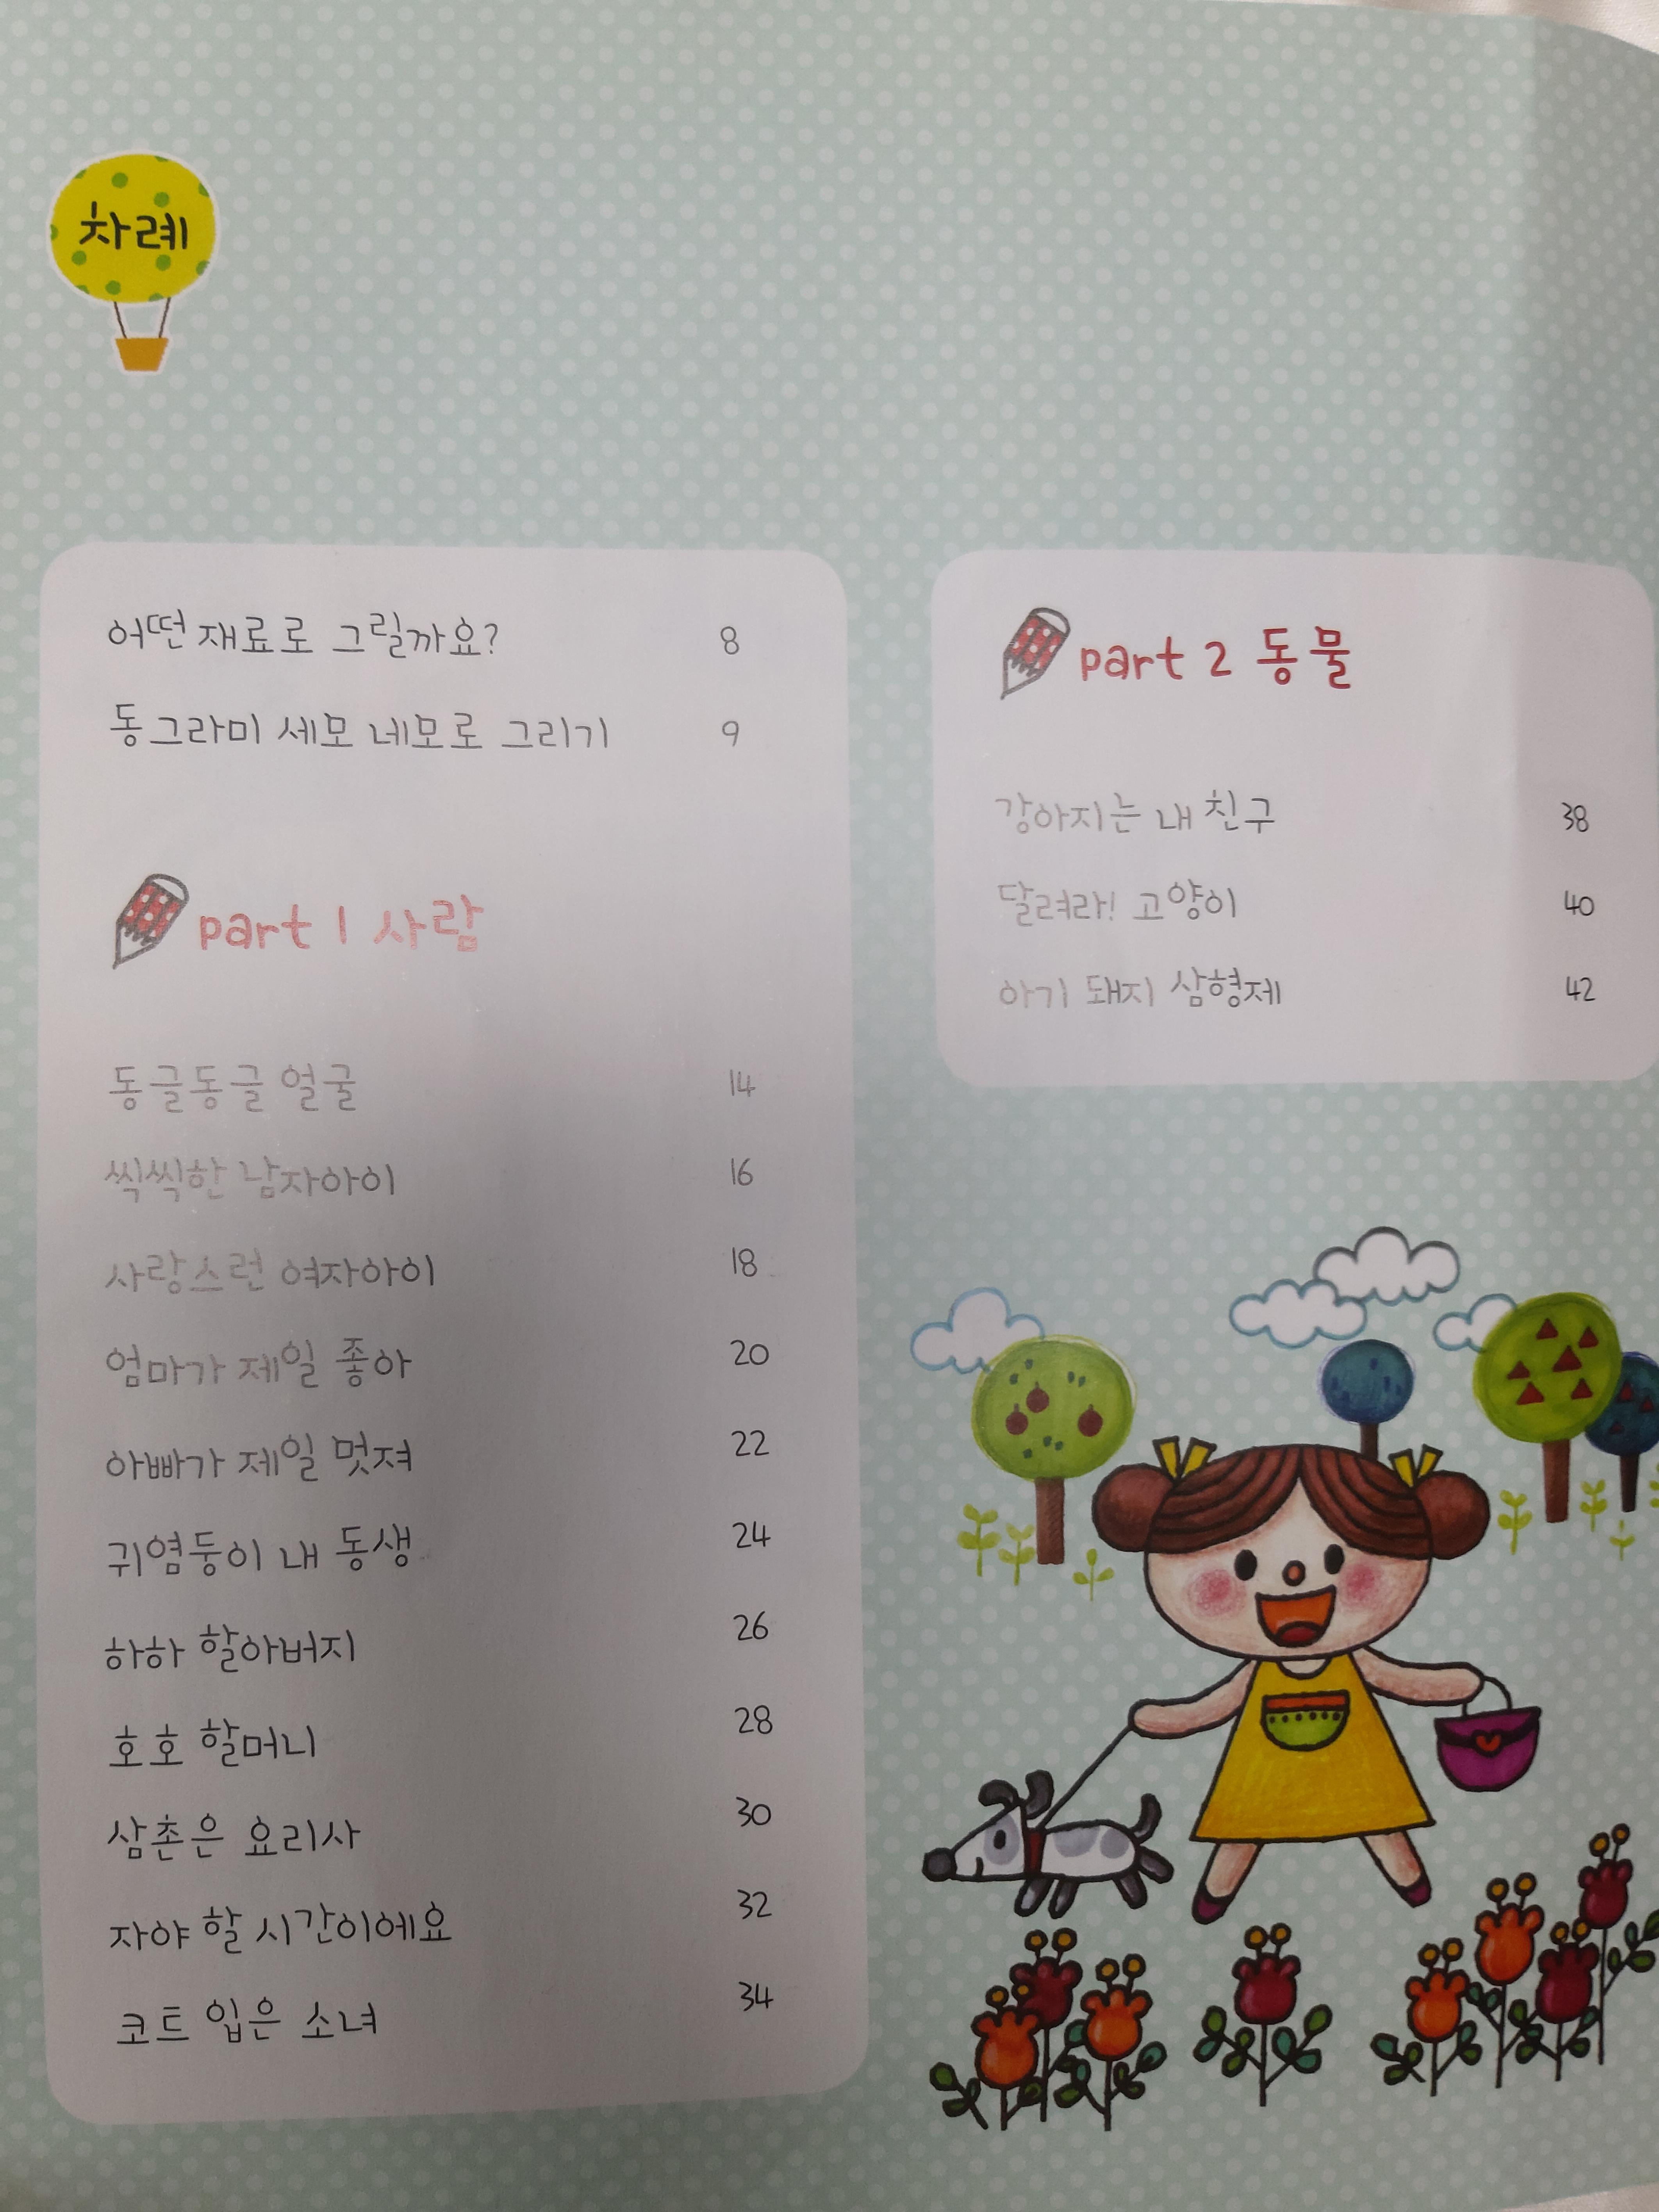 차례
어떤 재료로 그릴까요? 8
동그라미 세모 네모로 그리기 9
part 1 사람
동글동글 얼굴 14
씩씩한 남자아이 16
사랑스런 여자아이 18
엄마가 제일 좋아 20
아빠가 제일 멋져 22
귀염둥이 내 동생 24
하하 할아버지 26
호호 할머니 28
삼촌은 요리사 30
자야 할 시간이에요 32
코트 입은 소녀 34
part 2 동물
강아지는 내 친구 38
달려라! 고양이 40
아기 돼지 삼형제 42